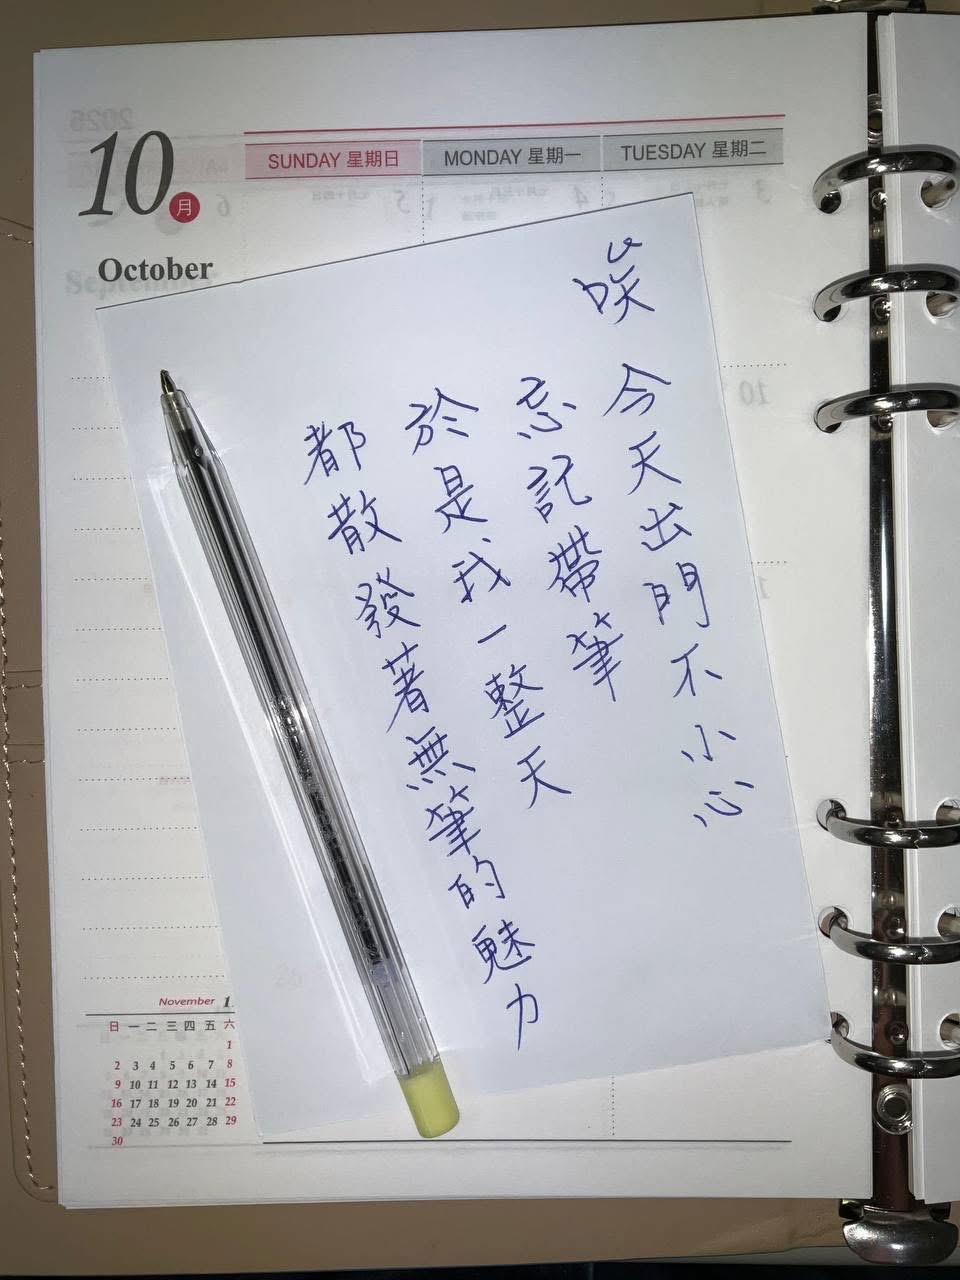 10
月
October
SUNDAY 星期日
MONDAY 星期一
TUESDAY 星期二
唉
今天出門不小心
忘記帶筆
於是我一整天
都散發著無筆的魅力
November 1
日 一 二 三 四 五 六
1
2 3 4 5 6 7 8
9 10 11 12 13 14 15
16 17 18 19 20 21 22
23 24 25 26 27 28 29
30